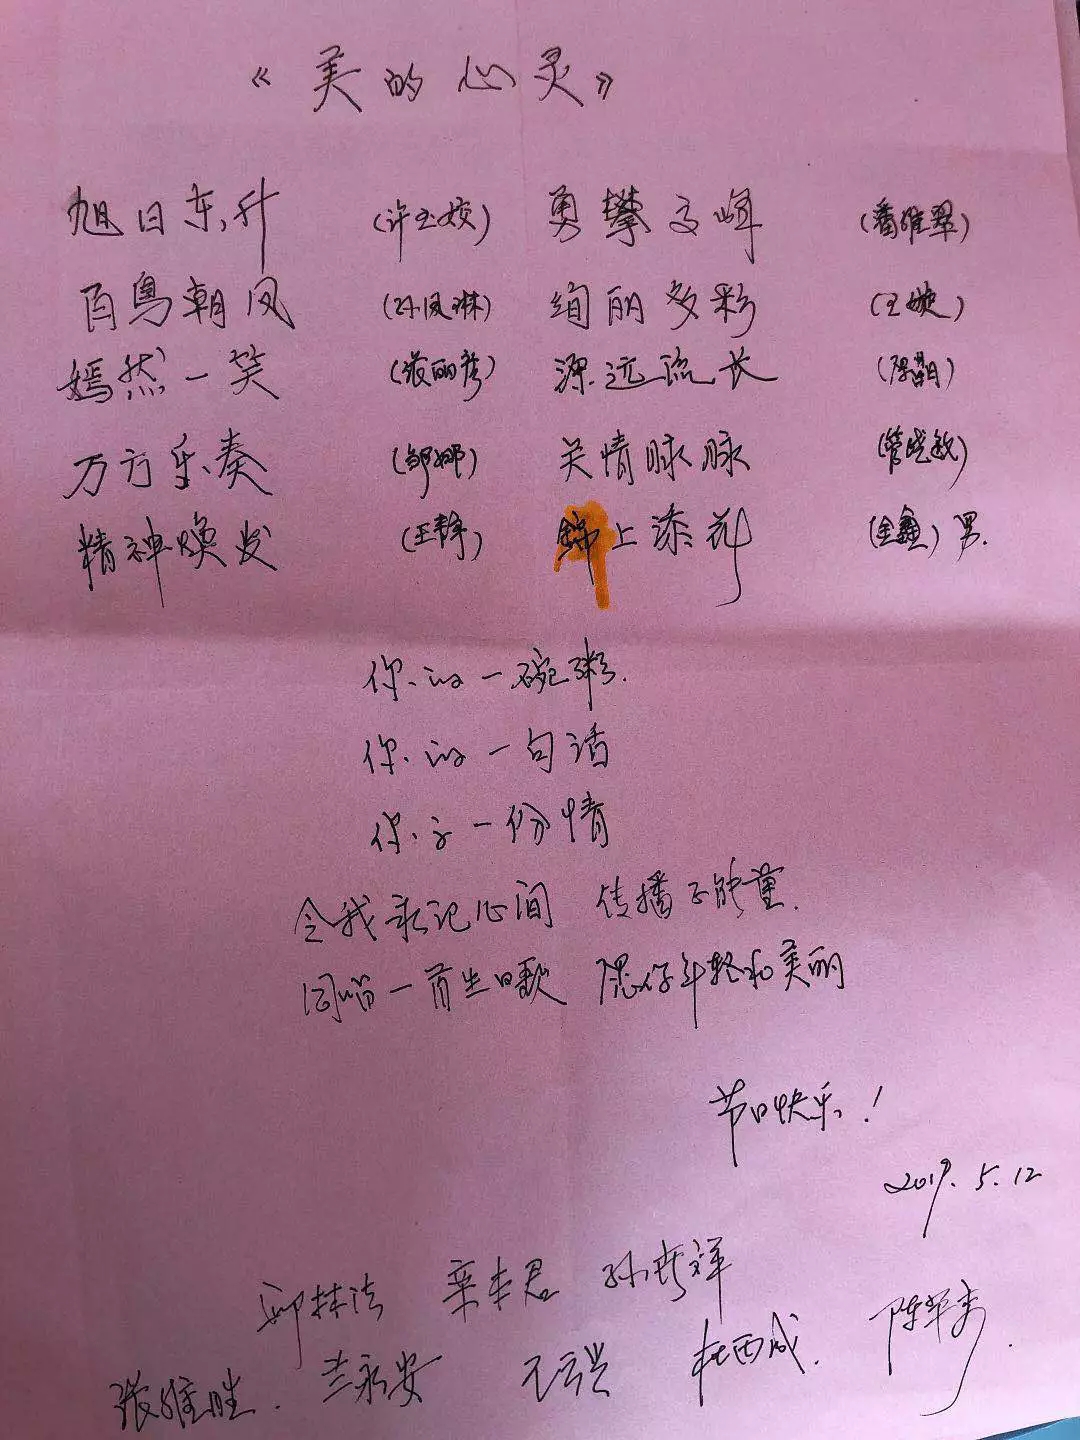 《美的心灵》
旭日东升 (许玉姣) 勇攀文峰 (潘维翠)
百鸟朝凤 (孙凤琳) 绚丽多彩 (王婕)
嫣然一笑 (张丽彦) 源远流长
万方乐奏 (邹娜) 关情脉脉 (管晓敏)
精神焕发 (王静) 锦上添花 (金鑫) 男.
你的一碗粥.
你的一句话
你的一份情
令我永记心间 传播正能量.
同唱一首生日歌 愿你年轻和美丽
节日快乐!
2019.5.12
邱林法 栾本君 孙彦祥
张维胜. 兰永安 杜西成. 陈平秀.